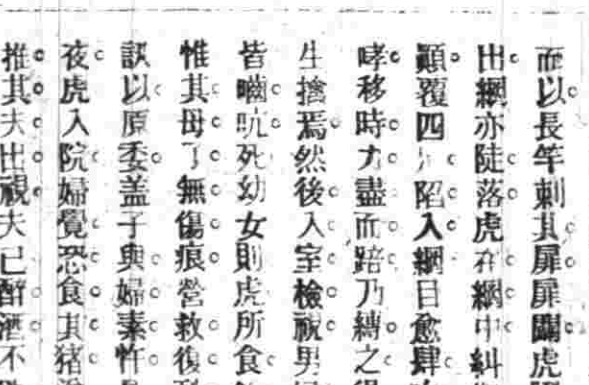 而以長竿刺其扉扉闢虎
出網亦陡落虎在網中糾
顚覆四爿陷入網目愈肆
哮移時力盡而踣乃縛之
生擒焉然後入室檢視男
皆嚙吭死幼女則虎所食
惟其母了無傷痕營救復
訊以原委盖子與婦素忤
夜虎入院婦覺恐食其猪
推其夫出視夫已醉酒不